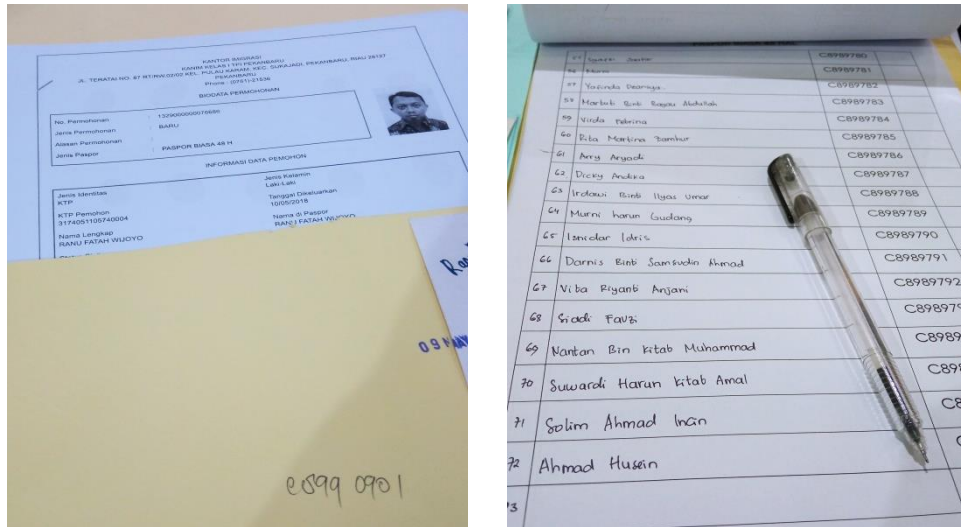 KANTOR IMIGRASI
KANIM KELAS I TPI PEKANBARU
JL. TERATAI NO. 87 RT/RW:02/02 KEL. PULAU KARAM, KEC. SUKAJADI, PEKANBARU, RIAU 28127
PEKANBARU
Phone : (0761)-21536
BIODATA PERMOHONAN
No. Permohonan :
Jenis Permohonan : BARU
Alasan Permohonan
Jenis Paspor : PASPOR BIASA 48 H
INFORMASI DATA PEMOHON
Jenis Identitas
KTP
Jenis Kelamin
Laki-Laki
KTP Pemohon
3174051105740004
Tanggal Dikeluarkan
10/05/2018
Nama Lengkap
RANU FATAH WIJOYO
Nama di Paspor
RANU FATAH WIJOYO
09
0901
57 C8989780
C8989781
C8989782
58 Martuti Binti Bagau Abdullah C8989783
59 Virda Febrina C8989784
60 Rita Martina Zamhur C8989785
61 Arry Aryadi C8989786
62 Dicky Andika C8989787
63 Irdawi Binti Ilyas Umar C8989788
64 Murni harun Gudang C8989789
65 Isnidar Idris C8989790
66 Darnis Binti Samsudin Ahmad C8989791
67 Viba Riyanti Anjani C8989792
68 Siddi Fauzi C898979
69 Nantan Bin Kitab Muhammad C8989
70 Suwardi Harun Kitab Amal C898
71 Solim Ahmad C8
72 Ahmad Husein